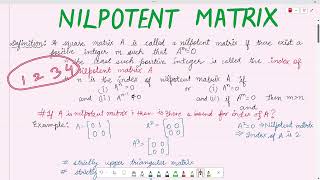 NILPOTENT MATRIX
Definition: A square matrix A is called a nilpotent matrix if there exist a
positive integer m such that Aᵐ=0
The least such positive integer is called the index of
nilpotent matrix A
1 2 3 4
n is the index of nilpotent matrix A if
(i) Aⁿ=0 or (i) Aⁿ=0
and (ii) Aⁿ⁻¹≠0 and (ii) then m>n
and
# If A is nilpotent matrix then Is there a bound for index of A?
Example: A= [0 1 A²= [0 0 A²=0 ⇒ Nilpotent matrix
0 0] 0 0] ⇒ Index of A is 2
A³= [0 0
0 0]
⇒ strictly upper triangular matrix
⇒ strictly